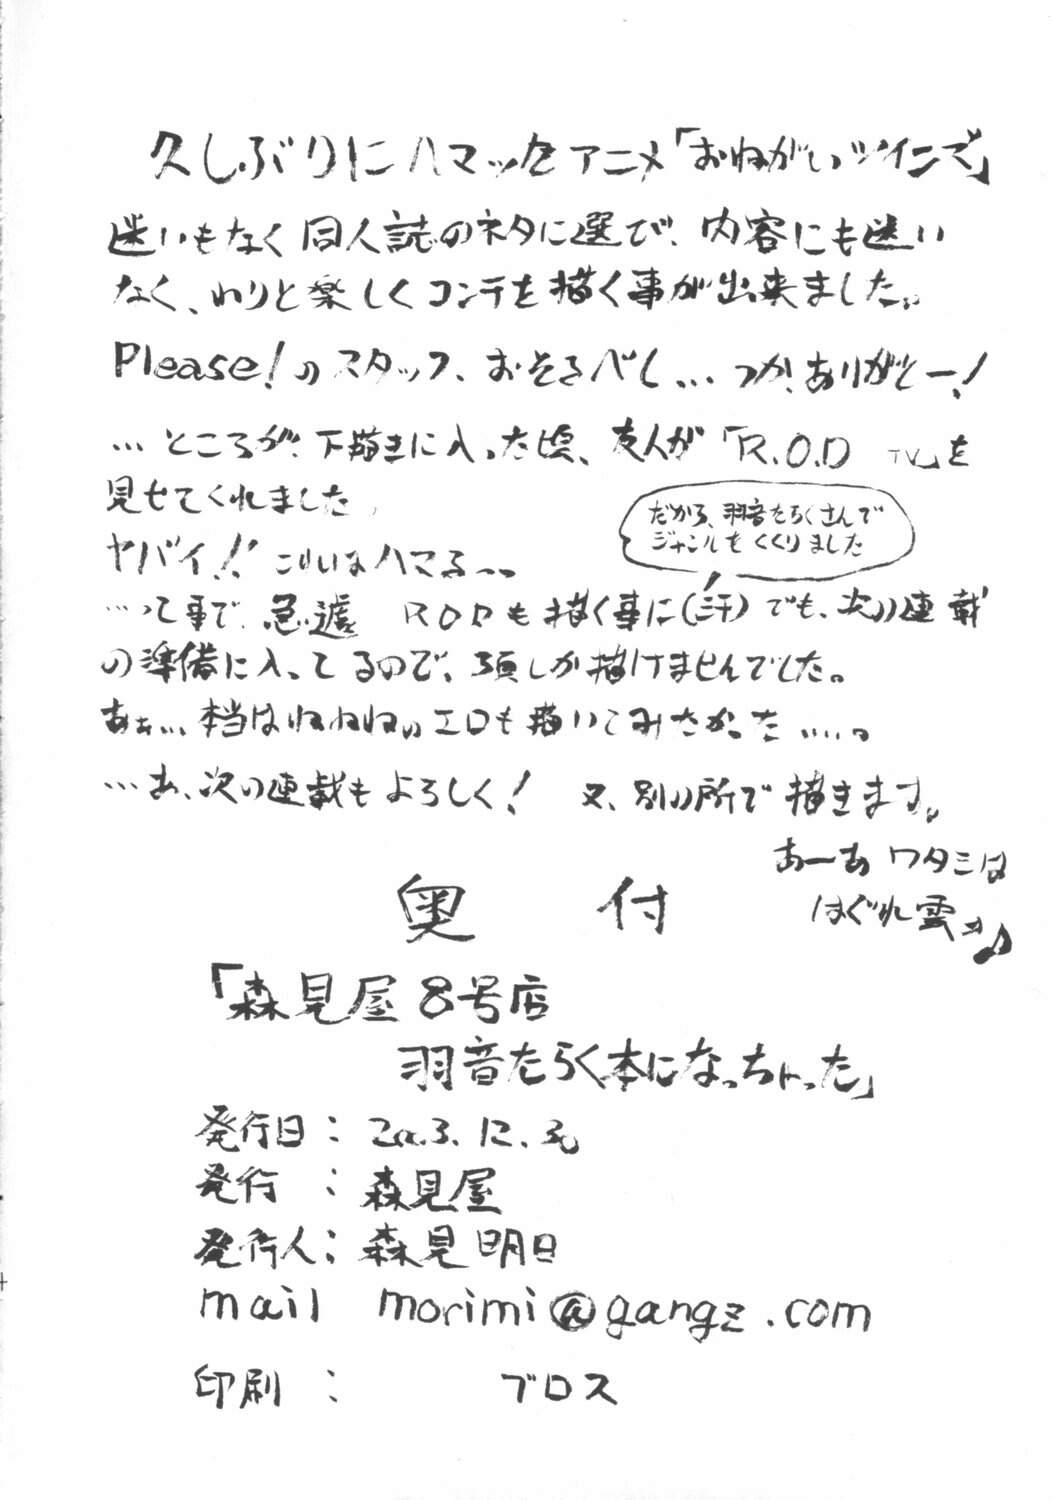 久しぶりにハマったアニメ「おねがいツインズ」
迷いもなく同人誌のネタに選び、内容にも迷い
なく、わりと楽しくコンテを描く事が出来ました。
Please!のスタッフ、おそるべし…つか、ありがとー!
…ところが、下描きに入った頃、友人が「R.O.D TV」を
見せてくれました。
だから、羽音たらくさんで
ジャンルをくくりました
ヤバイ!! これはハマる〜〜
…って事で、急遽 RODも描く事に(汗)でも、次の連載
の準備に入ってるので、3頁しか描けませんでした。
あぁ…本当はねねねのエロも描いてみたかった……。
…あ、次の連載もよろしく! 又、別の所で描きます。
あーあ ワタシは
はぐれ雲♪
奥 付
「森見屋8号店
羽音たらく本になっちゃった」
発行日: 2003.12.30
発行 : 森見屋
発行人: 森見明日
mail morimi@gangz.com
印刷 : ブロス